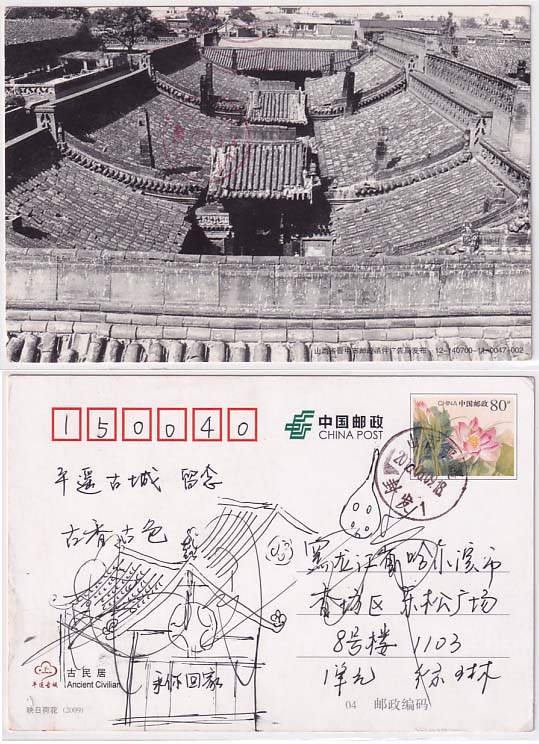 山西省晋中市邮政函件广告局发布 12-140700-11-0047-002
150040
中国邮政
CHINA POST
CHINA 中国邮政 80分
平遥古城 留念
古香古色
黑龙江省哈尔滨市
香坊区 东松广场
8号楼 1103
1单元
带你回家
平遥古城
古民居
Ancient Civilian
映日荷花 (2009)
04 邮政编码